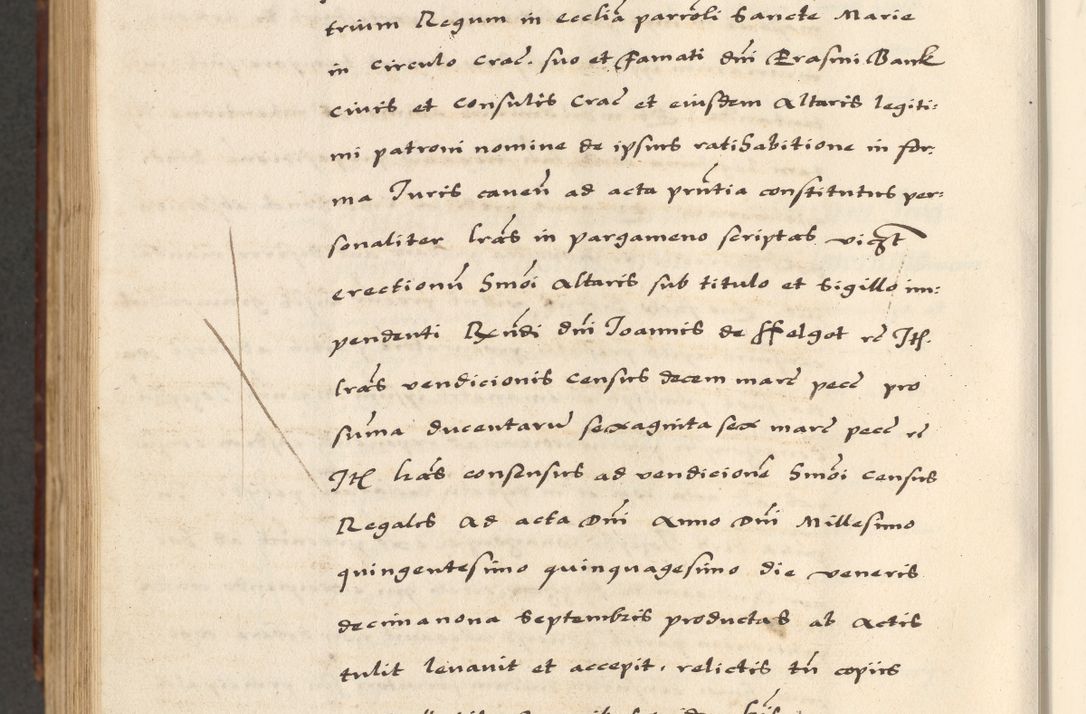 trium Regum in ecclia parroli Sancte Marie
in circulo Crac. suo et Famati dni Erasmi Bank
civis et Consulis Crac et eiusdem Altaris legiti:
mi patroni nomine de ipsius ratihabitione in for:
ma Juris caven ad acta prntia constitutus per:
sonaliter lras in pargameno scriptas vigzt
erectionu hmoi Altaris sub titulo et Sigillo im:
pendenti Rendi dni Joannis de ffelgot rc Jtꝭ.
lras vendicionis census decem marc pecc pro
suma ducentaru sexaginta sex marc pecc rc
Jtꝭ lras consensus ad vendicione hmoi census
Regales Ad acta Dni Anno Dni Millesimo
quingentesimo quinquagesimo die veneris
decimanona Septembris productas ab Actis
tulit levavit et accepit, relictis tn copiis